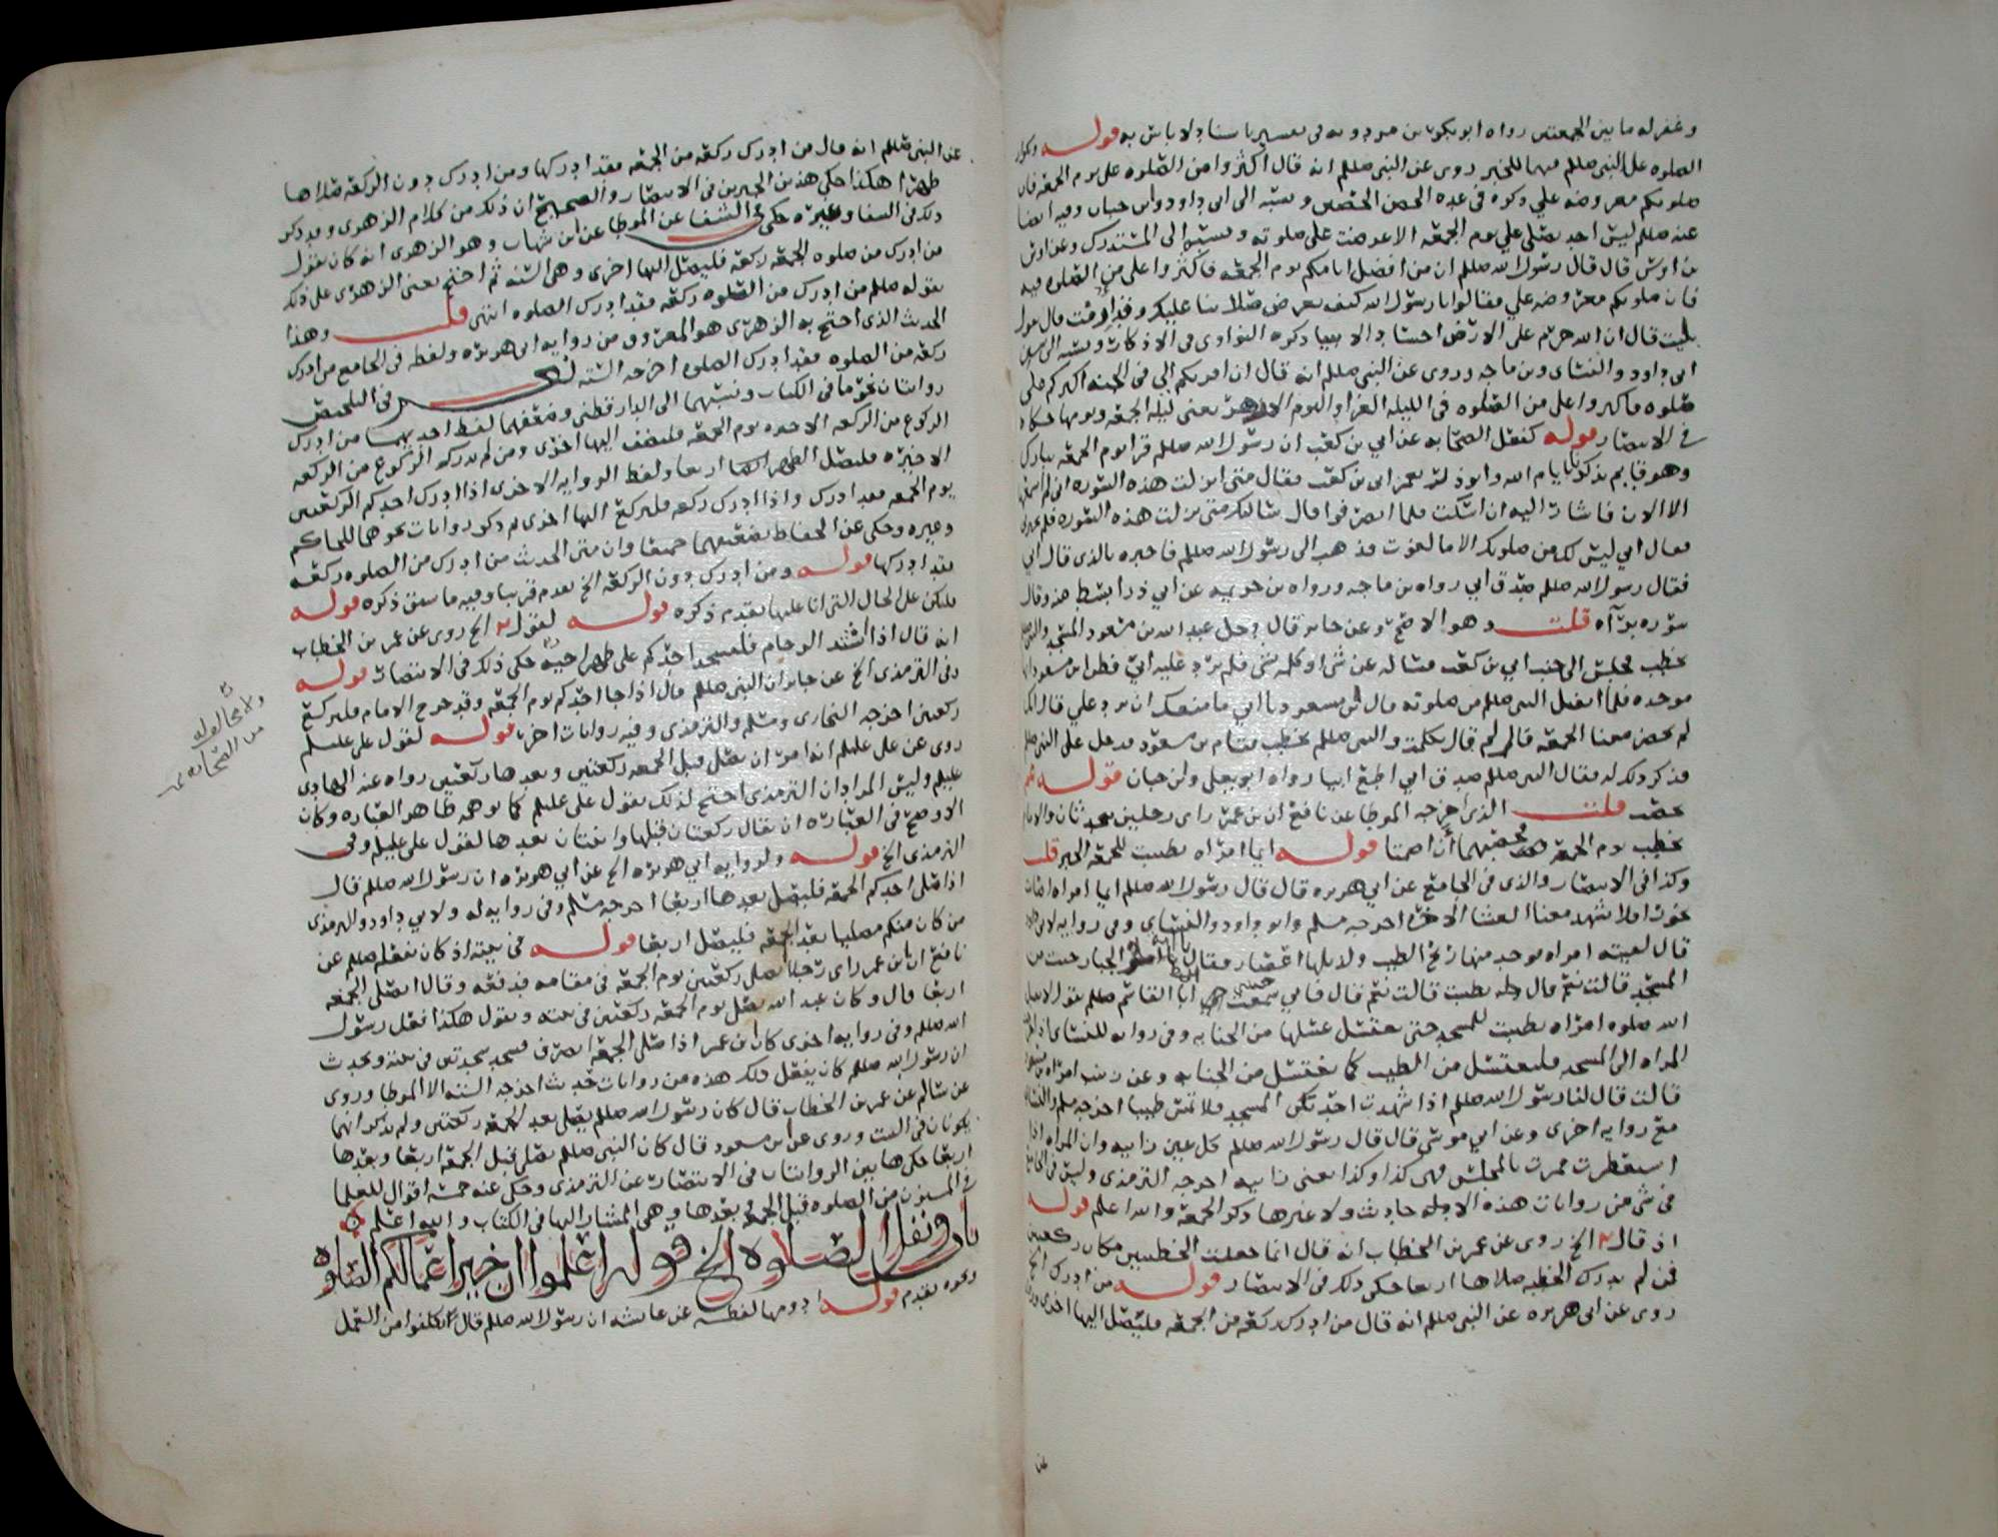 وغفر له ما بين الجمعتين رواه ابو بكر بن مردويه في تفسيره باسناد لا باس به قوله وتكرار
الصلوه على النبي صللم فيها للخبر روى عن النبي صللم انه قال اكثروا من الصلوه علي يوم الجمعه فان
صلوتكم معروضه علي ذكره في عده الحصن الحصين ونسبه الى ابي داود وابن حبان وفيه ايضا
عنه صللم ليس احد يصلي علي يوم الجمعه الا عرضت علي صلوته ونسبه الى المستدرك وعن اوس
بن اوس قال قال رسول الله صللم ان من افضل ايامكم يوم الجمعه فاكثروا علي من الصلوه فيه
فان صلوتكم معروضه علي فقالوا يا رسول الله كيف تعرض صلاتنا عليك وقد ارمت قال يقول
بليت قال ان الله حرم على الارض اجساد الانبيا ذكره النواوي في الاذكار ونسبه الى سنن
ابي داود والنسائي وبن ماجه وروى عن النبي صللم انه قال ان اقربكم الي في الجنه اكثركم علي
صلوه فاكثروا علي من الصلوه في الليله الغرا واليوم الازهر يعني ليله الجمعه ويومها حكاه
في الانتصار قوله كفعل الصحابه عن ابي بن كعب ان رسول الله صللم قرا يوم الجمعه تبارك
وهو قايم يذكر بايام الله وابو ذر يغمز ابي بن كعب فقال متى انزلت هذه السوره اني لم اسمعها
الا الان فاشار اليه ان اسكت فلما انصرفوا قال سالتك متى نزلت هذه السوره فلم تخبرني
فقال ابي ليس لك من صلوتك الا ما لغوت فذهب الى رسول الله صللم فاخبره بالذي قال ابي
فقال رسول الله صللم صدق ابي رواه بن ماجه ورواه بن خزيمه عن ابي ذر ابسط منه وقال
سوره براه قلت وهو الاصح وعن جابر قال دخل عبد الله بن مسعود المسجد والنبي صللم
يخطب فجلس الى جنب ابي بن كعب فساله عن شي او كلمه بشي فلم يرد عليه ابي فظن ابن مسعود انها
موجده فلما انفتل النبي صللم من صلوته قال بن مسعود يا ابي ما منعك ان ترد علي قال انك
لم تحضر معنا الجمعه قال لم قال تكلمت والنبي صللم يخطب فقام بن مسعود فدخل على النبي صللم
فذكر ذلك له فقال النبي صللم صدق ابي اطع ابيا رواه ابو يعلى وبن حبان قوله ثم
حصب قلت الذي اخرجه الموطا عن نافع ان بن عمر راى رجلين يتحدثان والامام
يخطب يوم الجمعه فحصبهما ان اصمتا قوله ايما امراه تطيبت للجمعه الخبر قلت
وكذا في الانتصار والذي في الجامع عن ابي هريره قال قال رسول الله صللم ايما امراه اصابت
بخورا فلا تشهد معنا العشا الاخره اخرجه مسلم وابو داود والنسائي وفي روايه لابي داود
قال لقيته امراه فوجد منها ريح الطيب ولذيلها اعصار فقال يا امه الجبار جيت من
المسجد قالت نعم قال وله تطيبت قالت نعم قال فاني سمعت حبيبي ابا القاسم صللم يقول لا يقبل
الله صلوه امراه تطيبت للمسجد حتى تغتسل غسلها من الجنابه وفي روايه للنسائي اذا خرجت
المراه الى المسجد فلتغتسل من الطيب كما تغتسل من الجنابه وعن زينب امراه بن مسعود
قالت قال لنا رسول الله صللم اذا شهدت احدتكن المسجد فلا تمس طيبا اخرجه مسلم والنسائي
مع روايه اخرى وعن ابي موسى قال قال رسول الله صللم كل عين زانيه وان المراه اذا
استعطرت فمرت بالمجلس فهي كذا وكذا يعني زانيه اخرجه الترمذي وليس في الجامع
في شي من روايات هذه الاحاديث ولا غيرها ذكر الجمعه والله اعلم قوله
اذ قال الخ روى عن عمر بن الخطاب انه قال انما جعلت الخطبتين مكان ركعتين
فمن لم يدرك الخطبه صلاها اربعا حكى ذلك في الانتصار قوله من ادرك الخ
روى عن ابي هريره عن النبي صللم انه قال من ادرك ركعه من الجمعه فليصل اليها اخرى وروى
عن
عن النبي صللم انه قال من ادرك ركعه من الجمعه فقد ادركها ومن ادرك دون الركعه صلاها
ظهرا هكذا حكى هذين الخبرين في الانتصار والصحيح ان ذلك من كلام الزهري وقد ذكر
ذلك في الشفا وغيره حكى في الشفا عن الموطا عن ابن شهاب وهو الزهري انه كان يقول
من ادرك من صلوه الجمعه ركعه فليصل اليها اخرى وهي السنه ثم احتج يعني الزهري على ذلك
بقوله صللم من ادرك من الصلوه ركعه فقد ادرك الصلوه انتهى قلت وهذا
الحديث الذي احتج به الزهري هو المعروف من روايه ابي هريره ولفظه في الجامع من ادرك
ركعه من الصلوه فقد ادرك الصلوه اخرجه السته نعم في التلخيص
روايتان نحو ما في الكتاب ونسبهما الى الدارقطني وضعفهما لفظ احديهما من ادرك
الركوع من الركعه الاخيره يوم الجمعه فليضف اليها اخرى ومن لم يدرك الركوع من الركعه
الاخيره فليصل الظهر اربعا ولفظ الروايه الاخرى اذا ادرك احدكم الركعتين
يوم الجمعه فقد ادرك واذا ادرك ركعه فليركع اليها اخرى ثم ذكر روايات نحوهما للحاكم
وغيره وحكى عن الحفاظ تضعيفهما جميعا وان متن الحديث من ادرك من الصلوه ركعه
فقد ادركها قوله ومن ادرك دون الركعه الخ تقدم قريبا وفيه ما سبق ذكره قوله
فليكن على الحال التي انا عليها تقدم ذكره قوله لقول الخ روى عن عمر بن الخطاب
انه قال اذا اشتد الزحام فليسجد احدكم على ظهر اخيه حكى ذلك في الانتصار قوله
وفي الترمذي الخ عن جابر ان النبي صللم قال اذا جا احدكم يوم الجمعه وقد خرج الامام فليركع
ركعتين اخرجه البخاري ومسلم والترمذي وفيه روايات اخر قوله لقول علي عليلم
روى عن علي عليلم انه امر ان يصلى قبل الجمعه ركعتين وبعدها ركعتين رواه عنه الهادي
عليلم وليس المراد ان الترمذي احتج لذلك بقول علي عليلم كما يوهمه ظاهر العباره وكان
الاوضح في العباره ان يقال ركعتان قبلها واثنتان بعدها لقول علي عليلم وفي
الترمذي الخ قوله ولروايه ابي هريره الخ عن ابي هريره ان رسول الله صللم قال
اذا صلى احدكم الجمعه فليصل بعدها اربعا اخرجه مسلم وفي روايه له ولابي داود والترمذي
من كان منكم مصليا بعد الجمعه فليصل اربعا قوله في بيته اذ كان يفعله صللم عن
نافع ان بن عمر راى رجلا يصلي ركعتين يوم الجمعه في مقامه فدفعه وقال اتصلي الجمعه
اربعا قال وكان عبد الله يصلي يوم الجمعه ركعتين في بيته ويقول هكذا فعل رسول
الله صللم وفي روايه اخرى كان بن عمر اذا صلى الجمعه انصرف فسجد سجدتين في بيته ويحدث
ان رسول الله صللم كان يفعل ذلك هذه من روايات حديث اخرجه السته الا الموطا وروى
عن سالم عن عمر بن الخطاب قال كان رسول الله صللم يصلي بعد الجمعه ركعتين ولم يذكر انهما
يكونان في البيت وروى عن ابن مسعود قال كان النبي صللم يصلي قبل الجمعه اربعا وبعدها
اربعا حكى هاتين الروايتان في الانتصار عن الترمذي وحكى عنه خمسه اقوال للعلما
في المسنون من الصلوه قبل الجمعه وبعدها وهي المشار اليها في الكتاب والله اعلم
باب ونفل الصلوه الخ قوله اعلموا ان خير اعمالكم الصلوه
ونحوه تقدم قوله ادومها لفظه عن عايشه ان رسول الله صللم قال اكلفوا من العمل
ولا مخالف له
من الصحابه